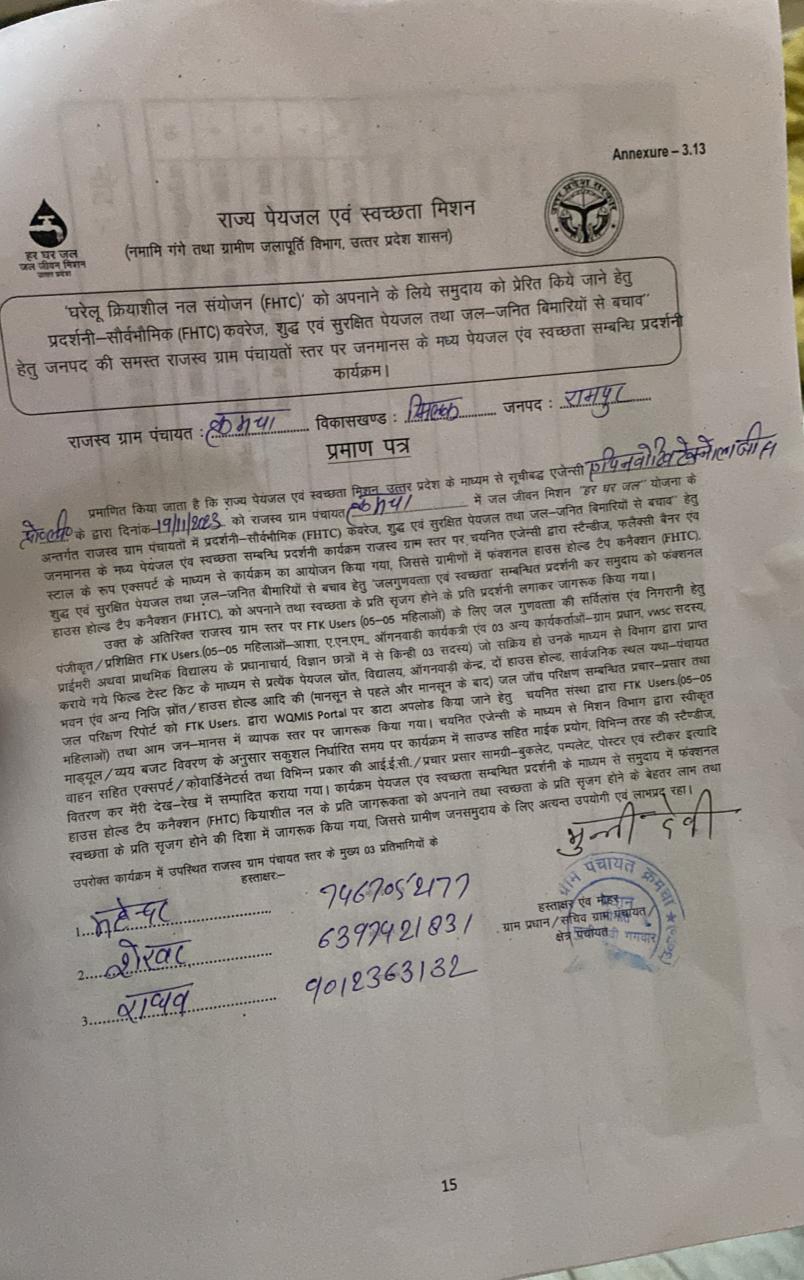 Annexure – 3.13
राज्य पेयजल एवं स्वच्छता मिशन
(नमामि गंगे तथा ग्रामीण जलापूर्ति विभाग, उत्तर प्रदेश शासन)
हर घर जल
जल जीवन मिशन
उत्तर प्रदेश
'घरेलू क्रियाशील नल संयोजन (FHTC)' को अपनाने के लिये समुदाय को प्रेरित किये जाने हेतु
प्रदर्शनी–सौर्वभौमिक (FHTC) कवरेज, शुद्ध एवं सुरक्षित पेयजल तथा जल–जनित बिमारियों से बचाव"
हेतु जनपद की समस्त राजस्व ग्राम पंचायतों स्तर पर जनमानस के मध्य पेयजल एंव स्वच्छता सम्बन्धि प्रदर्शनी
कार्यक्रम।
राजस्व ग्राम पंचायत : क्रमचा विकासखण्ड : मिलक जनपद : रामपुर
प्रमाण पत्र
प्रमाणित किया जाता है कि राज्य पेयजल एवं स्वच्छता मिशन उत्तर प्रदेश के माध्यम से सूचीबद्ध एजेन्सी
के द्वारा दिनांक-19/11/2023 को राजस्व ग्राम पंचायत क्रमचा में जल जीवन मिशन "हर घर जल" योजना के
अन्तर्गत राजस्व ग्राम पंचायतों में प्रदर्शनी–सौर्वभौमिक (FHTC) कवरेज, शुद्ध एवं सुरक्षित पेयजल तथा जल–जनित बिमारियों से बचाव" हेतु
जनमानस के मध्य पेयजल एंव स्वच्छता सम्बन्धि प्रदर्शनी कार्यक्रम राजस्व ग्राम स्तर पर चयनित एजेन्सी द्वारा स्टैन्डीज, फलैक्सी बैनर एंव
स्टाल के रूप एक्सपर्ट के माध्यम से कार्यक्रम का आयोजन किया गया, जिससे ग्रामीणों में फंक्शनल हाउस होल्ड टैप कनैक्शन (FHTC),
शुद्ध एवं सुरक्षित पेयजल तथा जल–जनित बीमारियों से बचाव हेतु 'जलगुणवत्ता एवं स्वच्छता' सम्बन्धित प्रदर्शनी कर समुदाय को फंक्शनल
हाउस होल्ड टैप कनैक्शन (FHTC), को अपनाने तथा स्वच्छता के प्रति सृजग होने के प्रति प्रदर्शनी लगाकर जागरूक किया गया।
उक्त के अतिरिक्त राजस्व ग्राम स्तर पर FTK Users (05–05 महिलाओं) के लिए जल गुणवत्ता की सर्विलांस एंव निगरानी हेतु
पंजीकृत/प्रशिक्षित FTK Users.(05–05 महिलाओं–आशा, ए.एन.एम., ऑगनवाड़ी कार्यकत्री एंव 03 अन्य कार्यकर्ताओं–ग्राम प्रधान, vwsc सदस्य,
प्राईमरी अथवा प्राथमिक विद्यालय के प्रधानाचार्य, विज्ञान छात्रों में से किन्ही 03 सदस्य) जो सक्रिय हो उनके माध्यम से विभाग द्वारा प्राप्त
कराये गये फिल्ड टेस्ट किट के माध्यम से प्रत्येक पेयजल स्रोंत, विद्यालय, ऑगनवाड़ी केन्द्र, दों हाउस होल्ड, सार्वजनिक स्थल यथा–पंचायत
भवन एंव अन्य निजि स्रोंत/हाउस होल्ड आदि की (मानसून से पहले और मानसून के बाद) जल जॉच परिक्षण सम्बन्धित प्रचार–प्रसार तथा
जल परिक्षण रिपोर्ट को FTK Users. द्वारा WQMIS Portal पर डाटा अपलोड किया जाने हेतु चयनित संस्था द्वारा FTK Users.(05–05
महिलाओं) तथा आम जन–मानस में व्यापक स्तर पर जागरूक किया गया। चयनित एजेन्सी के माध्यम से मिशन विभाग द्वारा स्वीकृत
माड्यूल/व्यय बजट विवरण के अनुसार सकुशल निर्धारित समय पर कार्यक्रम में साउण्ड सहित माईक प्रयोग, विभिन्न तरह की स्टैण्डीज,
वाहन सहित एक्सपर्ट/कोवार्डिनेटर्स तथा विभिन्न प्रकार की आई.ई.सी./प्रचार प्रसार सामग्री–बुकलेट, पम्पलेट, पोस्टर एवं स्टीकर इत्यादि
वितरण कर मेंरी देख–रेख में सम्पादित कराया गया। कार्यक्रम पेयजल एंव स्वच्छता सम्बन्धित प्रदर्शनी के माध्यम से समुदाय में फंक्शनल
हाउस होल्ड टैप कनैक्शन (FHTC) कियाशील नल के प्रति जागरूकता को अपनाने तथा स्वच्छता के प्रति सृजग होने के बेहतर लाभ तथा
स्वच्छता के प्रति सृजग होने की दिशा में जागरूक किया गया, जिससे ग्रामीण जनसमुदाय के लिए अत्यन्त उपयोगी एवं लाभप्रद रहा।
मुन्नी देवी
उपरोक्त कार्यक्रम में उपस्थित राजस्व ग्राम पंचायत स्तर के मुख्य 03 प्रतिभागियों के
हस्ताक्षर:–
1. महेन्द्र 7467052177
2. शेखर 6397421831
3. राघव 9012363132
ग्राम पंचायत क्रमचा
हस्ताक्षर एंव मोहर
ग्राम प्रधान/सचिव ग्राम पंचायत/
क्षेत्र पंचायत
15